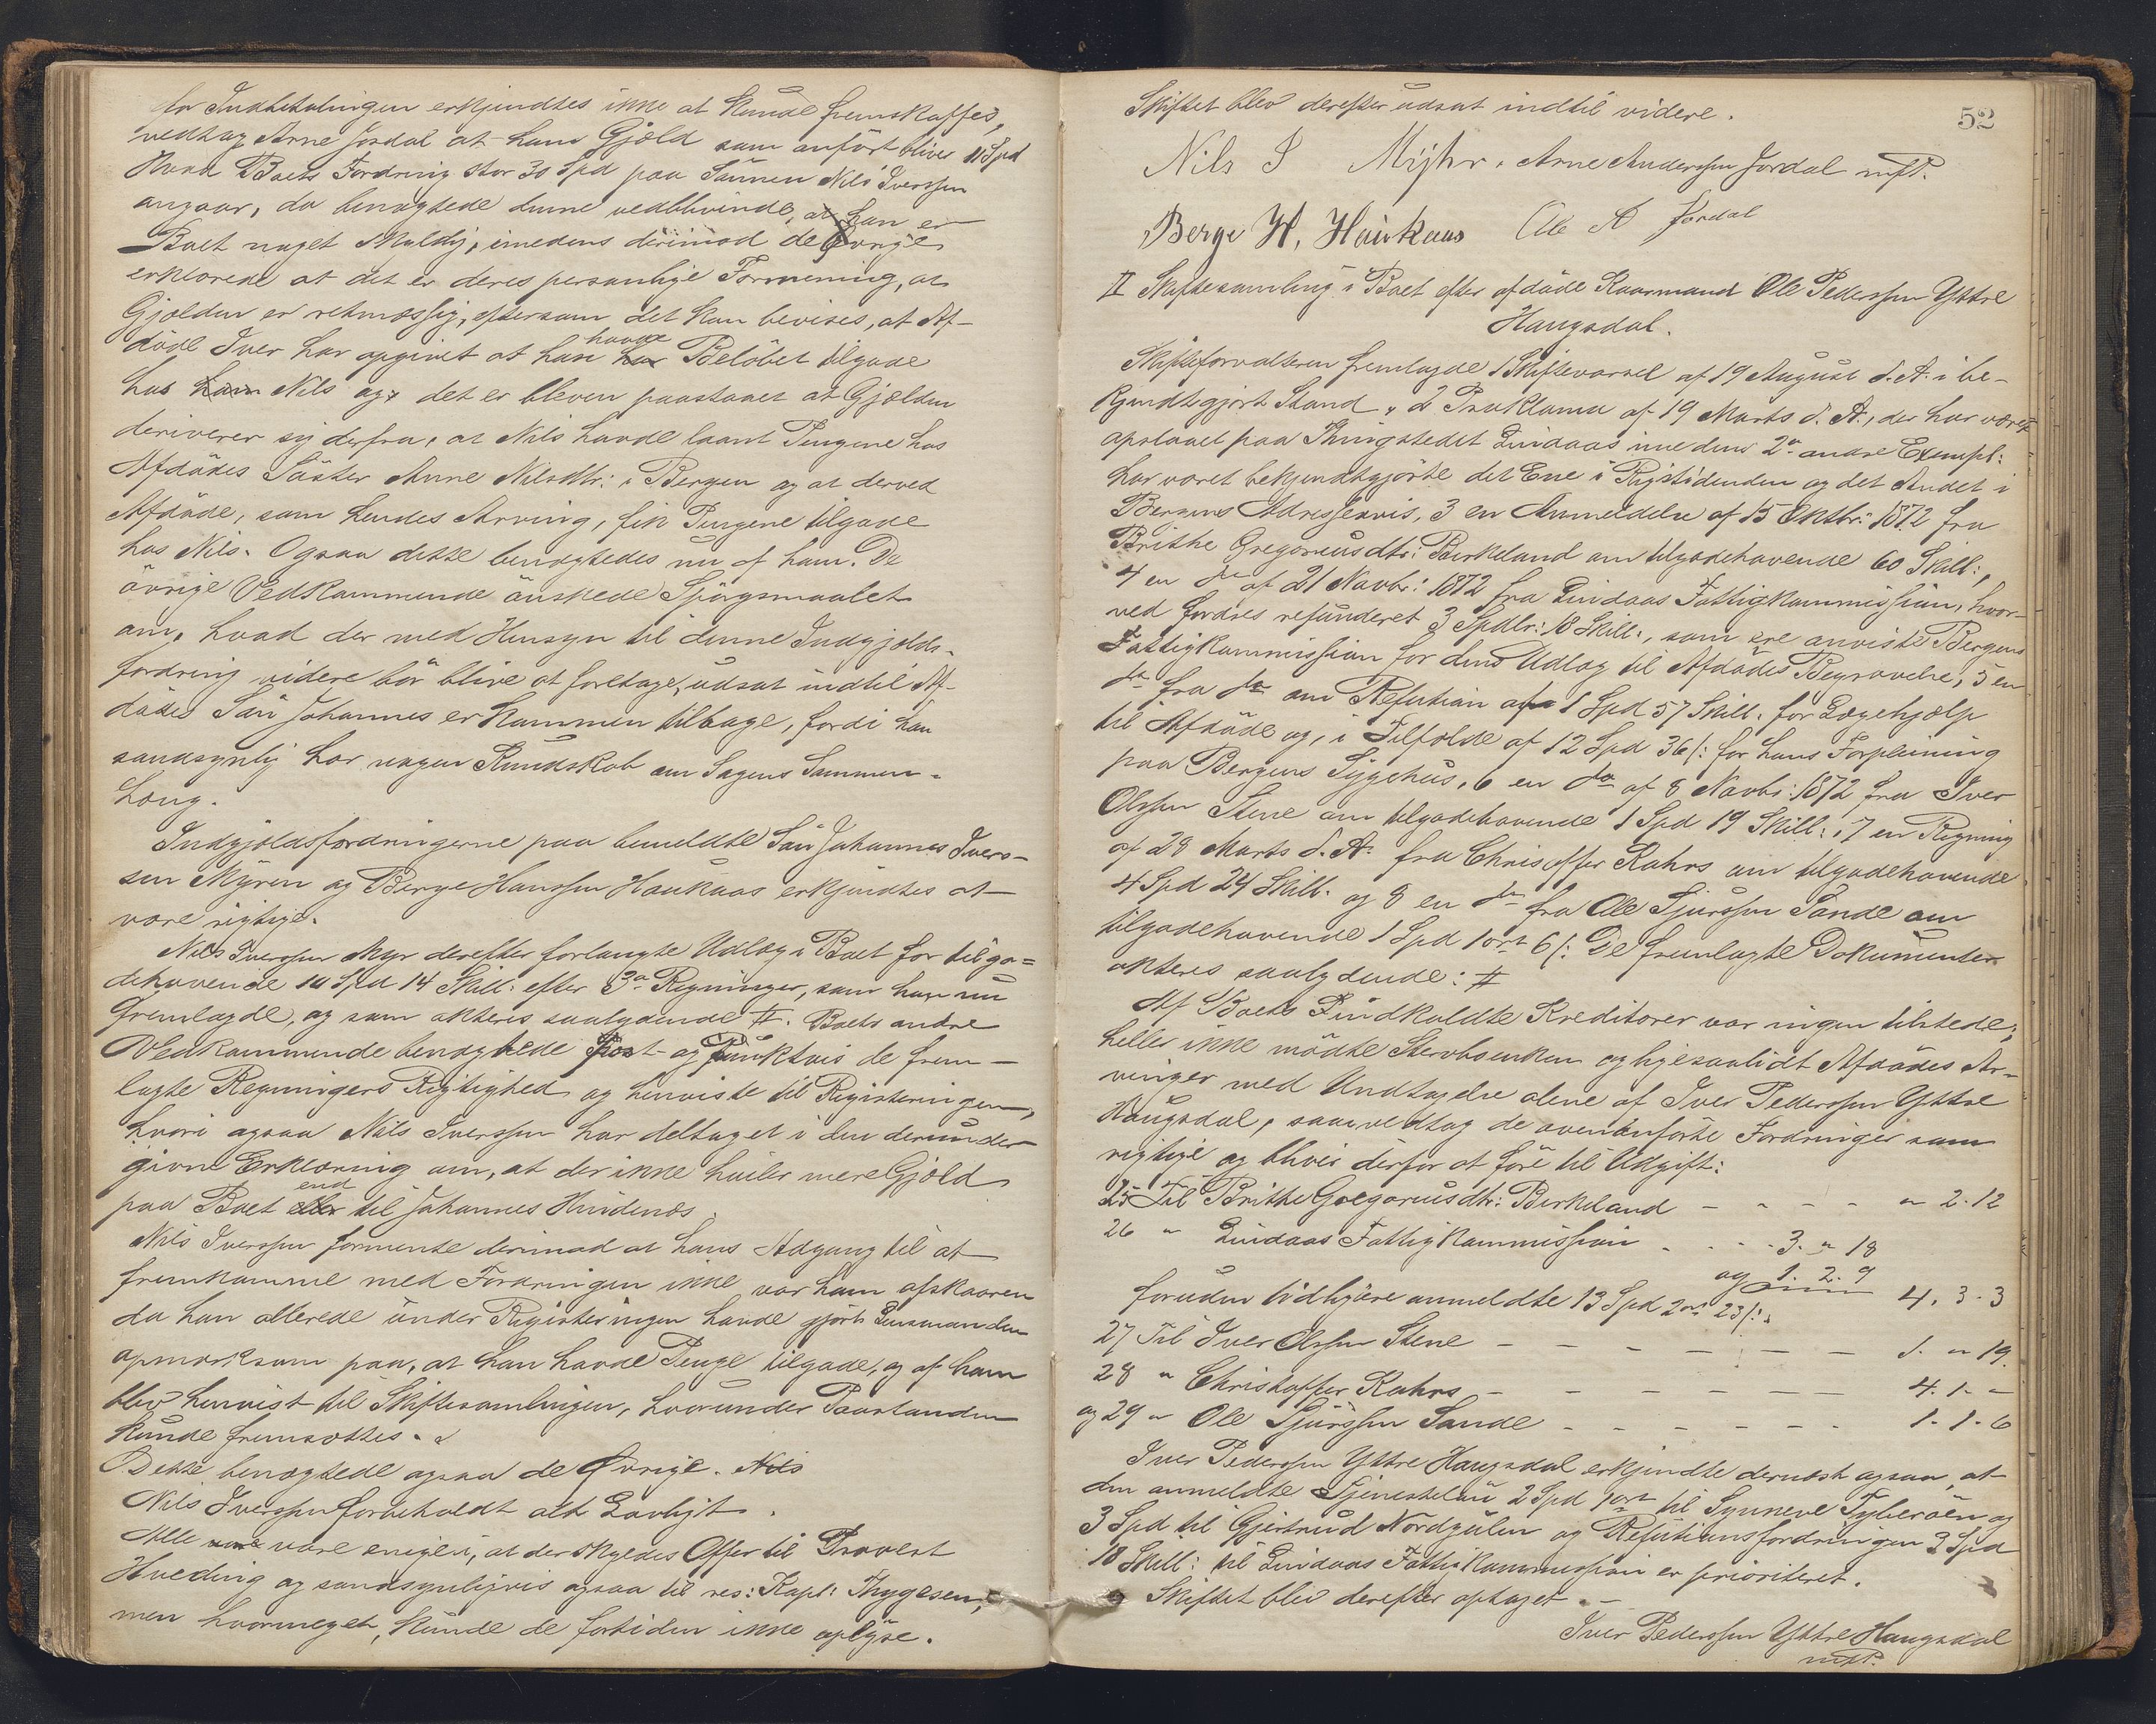 for Indbetalingen erkjendtes ikke at kunde fremskaffes,
vedtog Arne Jordal at hans Gjæld som anført bliver 11 Spd
Hvad Boets Fordring stor 30 Spd paa Sønnen Nils Iverssen
angaar, da benægtede denne vedblivende, at han er
Boet noget skyldig, imedens derimod de Øvrige
erklærede at det er deres personlige Formening, at
Gjælden er retmæssig, eftersom det kan bevises, at Af-
døde Iver har opgivet at han havde har Beløbet tilgode
hos ham Nils og det er bleven paastaaet at Gjælden
deriverer sig derfra, at Nils havde laant Pengene hos
Afdødes Søster Anne Nilsdtr: i Bergen og at derved
Afdøde, som hendes Arving, fik Pengene tilgode
hos Nils. Ogsaa dette benægtedes nu af ham. De
øvrige Vedkommende ønskede Spørgsmaalet
om, hvad der med Hensyn til denne Indgjælds-
fordring videre bør blive at foretage, udsat indtil Af-
dødes Søn Johannes er kommen tilbage, fordi han
sandsynlig har nogen Kundskab om Sagens Sammen-
hæng.
Indgjældsfordringerne paa bemeldte Søn Johannes Ivers-
sen Myren og Berge Hanssen Haukaas erkjendtes at
være rigtige.
Nils Iverssen Myr derefter forlangte Udlæg i Boet for tilgo-
dehavende 10 Spd 14 Skill: efter 3a Regninger, som han nu
fremlagde, og som akteres saalydende #. Boets andre
Vedkommende benægtede Post- og Punktvis de frem-
lagte Regningers Rigtighed og henviste til Registeringen,
hvori ogsaa Nils Iverssen har deltaget i den derunder
givne Erklæring om, at der ikke hviler mere Gjæld
paa Boet eller end til Johannes Hindenæs.
Nils Iverssen formente derimod at hans Adgang til at
fremkomme med Fordringen ikke var ham afskaaren
da han allerede under Registeringen havde gjort Lensmanden
opmærksom paa, at han havde Penge tilgode, og af ham
blev henvist til Skiftesamlingen, hvorunder Paastanden
kunde fremsættes.
Dette benægtede ogsaa de Øvrige. Nils
Nils Iverssen forbeholdt alt Lovligt.
Alle vare vare enige i, at der skyldes Offer til Provst
Hveding og sandsynligvis ogsaa til res: Kapl: Thygesen,
men hvormeget, kunde de fortiden ikke oplyse.
52
Skiftet blev derefter udsat indtil videre.
Nils I Myhr. Arne Anderssen Jordal mfP.
Berge H. Haukaas Ole A Jordal
II Skiftesamling i Boet efter afdøde Kaarmand Ole Pederssen Yttre
Haugsdal.
Skifteforvalteren fremlagde 1 Skiftevarsel af 19 August d. A. i be-
kjendtgjort Stand, 2 Proklama af 19 Marts d. A., der har været
opslaaet paa Thingstedet Lindaas imedens 2de andre Exempl:
har været bekjendtgjorte det Ene i Rigstidenden og det Andet i
Bergens Adresseavis, 3 en Anmeldelse af 15 Oktbr: 1872 fra
Brithe Gregoriusdtr: Birkeland om tilgodehavende 60 Skill:,
4 en do af 21 Novbr: 1872 fra Lindaas Fattigkommission, hvor-
ved fordres refunderet 3 Spdlr: 18 Skill:, som ere anviste Bergens
Fattigkommission for dens Udlæg til Afdødes Begravelse, 5 en
do fra do om Refusion af 1 Spd 57 Skill. for Lægehjælp
til Afdøde og, i Tilfælde af 12 Spd 36 /: for hans Forpleining
paa Bergens Sygehus, 6 en do af 8 Novbr: 1872 fra Iver
Olssen Stene om tilgodehavende 1 Spd 19 Skill:, 7 en Regning
af 28 Marts d. A. fra Christoffer Kahrs om tilgodehavende
4 Spd 24 Skill. og 8 en do fra Ole Sjurssen Sande om
tilgodehavende 1 Spd 1 ort 6 /: De fremlagte Dokumenter
akteres saalydende: #
Af Boets Indkaldte Kreditorer var ingen tilstede;
heller ikke mødte Stervboenken og ligesaalidt Afdødes Ar-
vinger med Undtagelse alene af Iver Pederssen Yttre
Haugsdal, som vedtog de ovenanførte Fordringer som
rigtige og bliver derfor at føre til Udgift:
25 Til Brithe Gregoriusdtr: Birkeland - - - - " 2. 12
26 " Lindaas Fattigkommission . - - . 3. " 18
og 1. 2. 9
foruden tidligere anmeldte 13 Spd 2 ort 23 /:. 4. 3. 3
27 Til Iver Olssen Stene - - - - - - - 1. " 19.
28 " Christoffer Kahrs - - - - - - - 4. 1. "
og 29 " Ole Sjurssen Sande - - - - - - 1. 1. 6
Iver Pederssen Yttre Haugsdal erkjendte dernæst ogsaa, at
den anmeldte Tjenesteløn 2 Spd 1 ort til Synneve Tyberøen og
3 Spd til Gjertrud Nordgulen og Refusionsfordringen 3 Spd
18 Skill: til Lindaas Fattigkommission er prioriteret.
Skiftet blev derefter optaget. -
Iver Pederssen Yttre Haugsdal
mfP.